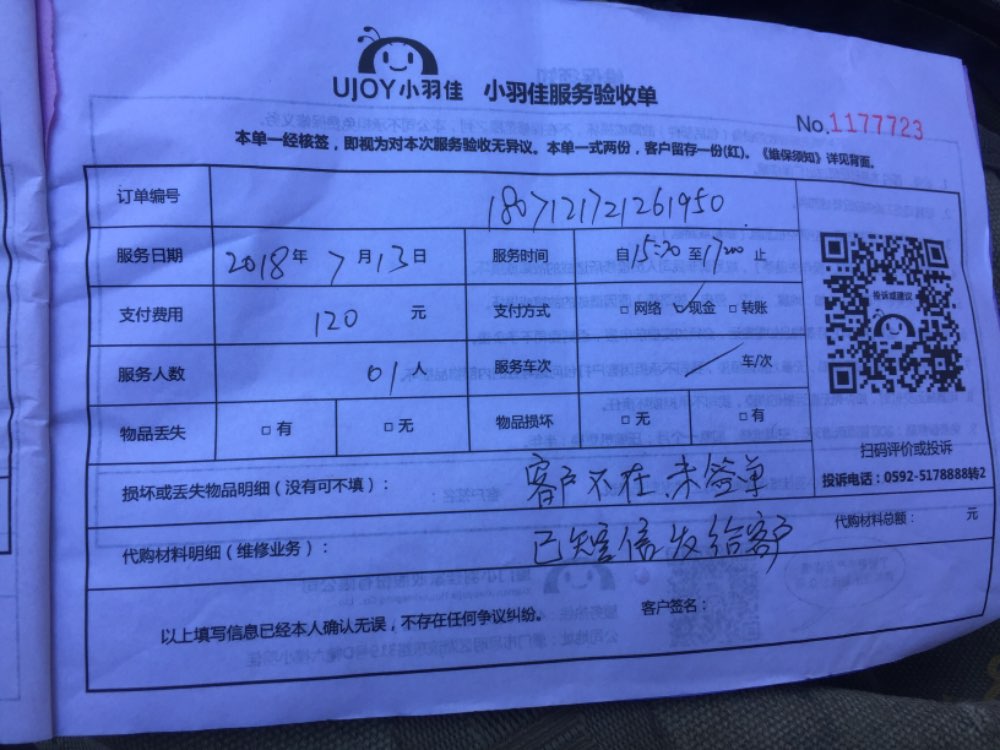 UJOY小羽佳 小羽佳服务验收单
No.1177723
本单一经核签，即视为对本次服务验收无异议。本单一式两份，客户留存一份(红)。《维保须知》详见背面。
订单编号 1807121721261950
服务日期 2018年7月13日 服务时间 自15:30至17:00止
支付费用 120元 支付方式 □网络 □现金 □转账
投诉或建议
服务人数 01人 服务车次 车/次
物品丢失 □有 □无 物品损坏 □无 □有
扫码评价或投诉
投诉电话：0592-5178888转2
损坏或丢失物品明细（没有可不填）： 客户不在，未签单
代购材料明细（维修业务）： 已短信发给客户 代购材料总额： 元
以上填写信息已经本人确认无误，不存在任何争议纠纷。 客户签名：